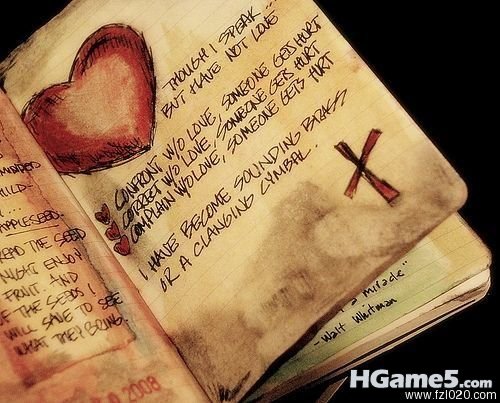 THOUGH I SPEAK...
BUT HAVE NOT LOVE
CONFRONT W/O LOVE, SOMEONE GETS HURT
CORRECT W/O LOVE, SOMEONE GETS HURT
COMPLAIN W/O LOVE, SOMEONE GETS HURT
I HAVE BECOME SOUNDING BRASS
OR A CLANGING CYMBAL.
X
APPLESEED.
THE SEED
NIGHT ENJOY
FRUIT AND
THE SEEDS I
WILL SAVE TO SEE
WHAT THEY BRING.
2008
a miracle"
- Walt Whitman
HGame5.com
www.fzl020.com